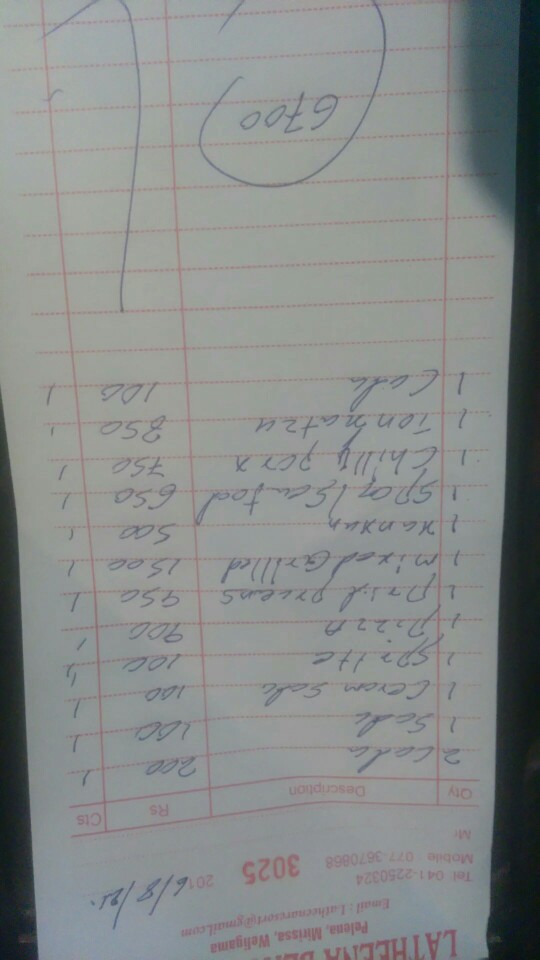 LATHEENA
Pelena, Mirissa, Weligama
Email : Latheenaresort@gmail.com
Tel: 041-2250324
Mobile : 077-3670868 3025 201
Mr
Qty Description Rs Cts
2 Cola 200 /
1 Soda 100 /
1 Ceram Soda 100 /
1 Sprite 100 /
1 pizza 900 /
1 950 /
1 mixed Grilled 1500 /
1 500 /
1 Spag/Seafood 650 /
1 Chilly porx 750 /
1 850 /
1 Cola 100 /
6700